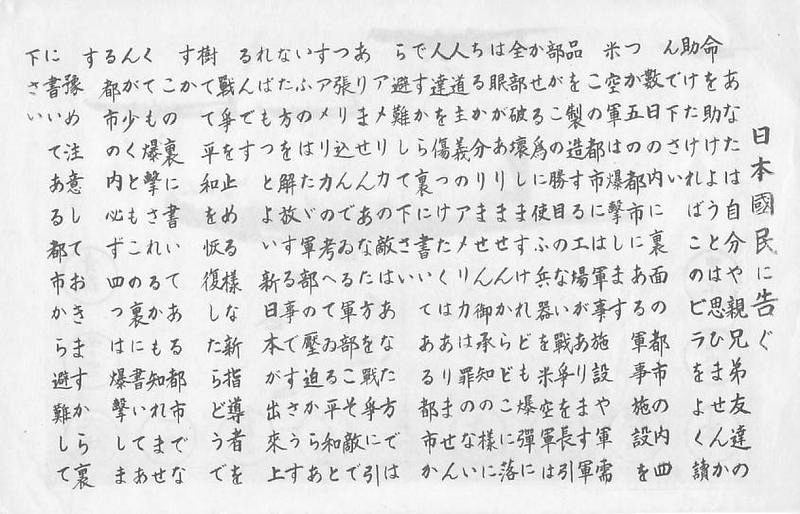 日本國民に告ぐ
あなたは自分や親兄弟友達の
命を助けようとは思ひませんか
助けたければこのビラをよく讀
んで下さい
数日の内に裏面の都市の内四
つか五つの都市にある軍事施設を
米空軍は爆撃します
この都市には軍事施設や軍需
品を製造する工場があります軍
部がこの勝目のない戦爭を長引
かせる為に使ふ兵器を米空軍は
全部破壊しますけれども爆彈に
は眼がありませんからどこに落
ちるか分りません御承知の様に
人道主義のアメリカは罪のない
人達を傷つけたくはありません
ですから裏に書いてある都市か
ら避難して下さい
アメリカの敵はあなた方では
ありませんあなた方を戦爭に引
つ張り込んでゐる軍部こそ敵で
すアメリカの考へてゐる平和と
いふのはたゞ軍部の壓迫からあ
なた方を解放する事ですさうす
ればもつとよい新日本が出來上
るんです
戦爭を止める様な新指導者を
樹てて平和を恢復したらどうで
すか
この裏に書いてある都市でな
くても爆撃されるかも知れませ
んが少くともこの裏に書いてあ
る都市の内必ず四つは爆撃しま
す
豫め注意しておきますから裏
に書いてある都市から避難して
下さい